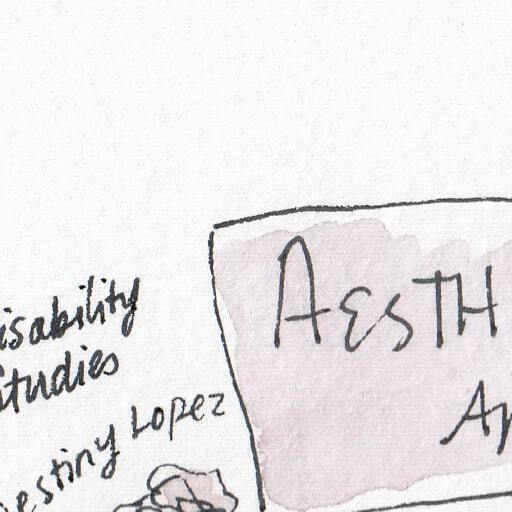 isability
Studies
estiny Lopez
AESTH
Ar